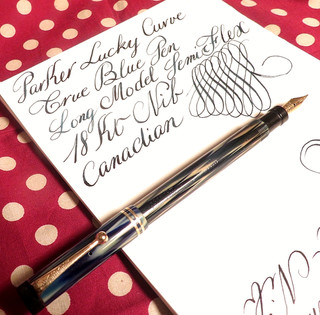 Parker Lucky Curve
True Blue Pen
Long Model Semi Flex
18 Kt Nib
Canadian
Nib